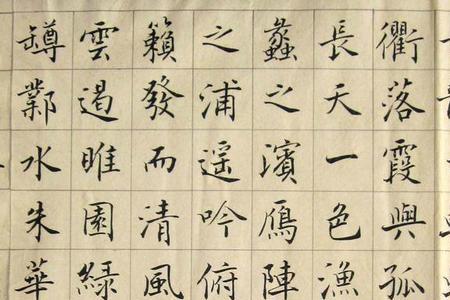 衢落霞與孤
長天一色漁
蠡之濱鴈陣
之浦遥吟俯
籟發而清風
雲遏睢園緑
罇鄴水朱華